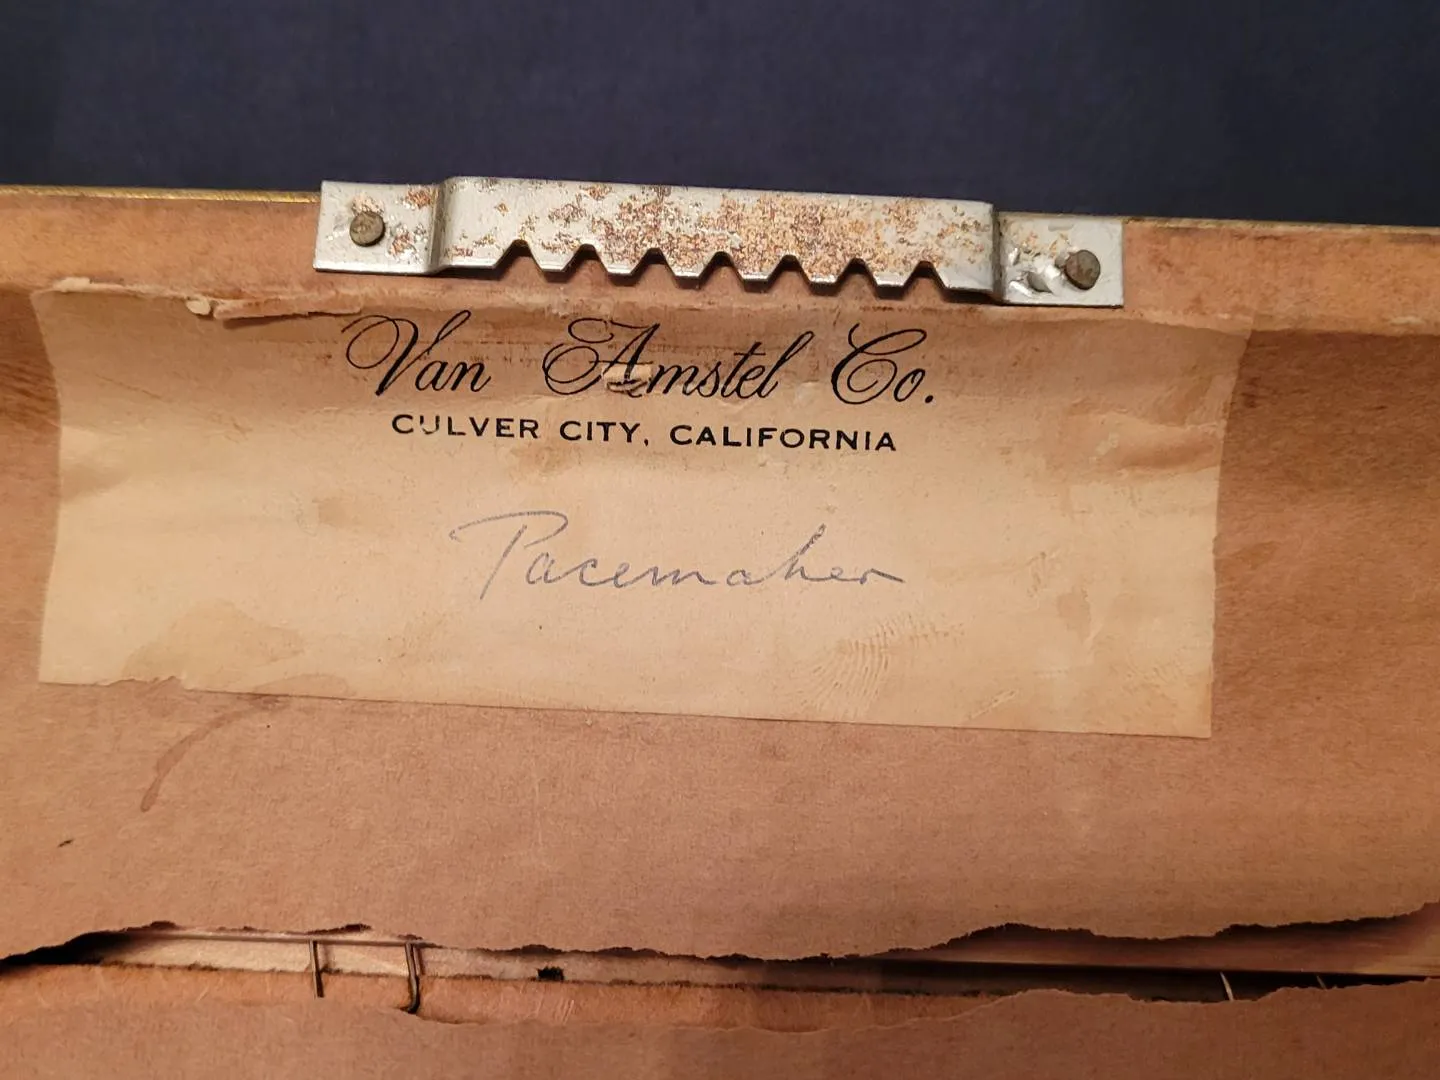 Van Amstel Co.
CULVER CITY, CALIFORNIA
Pacemaker